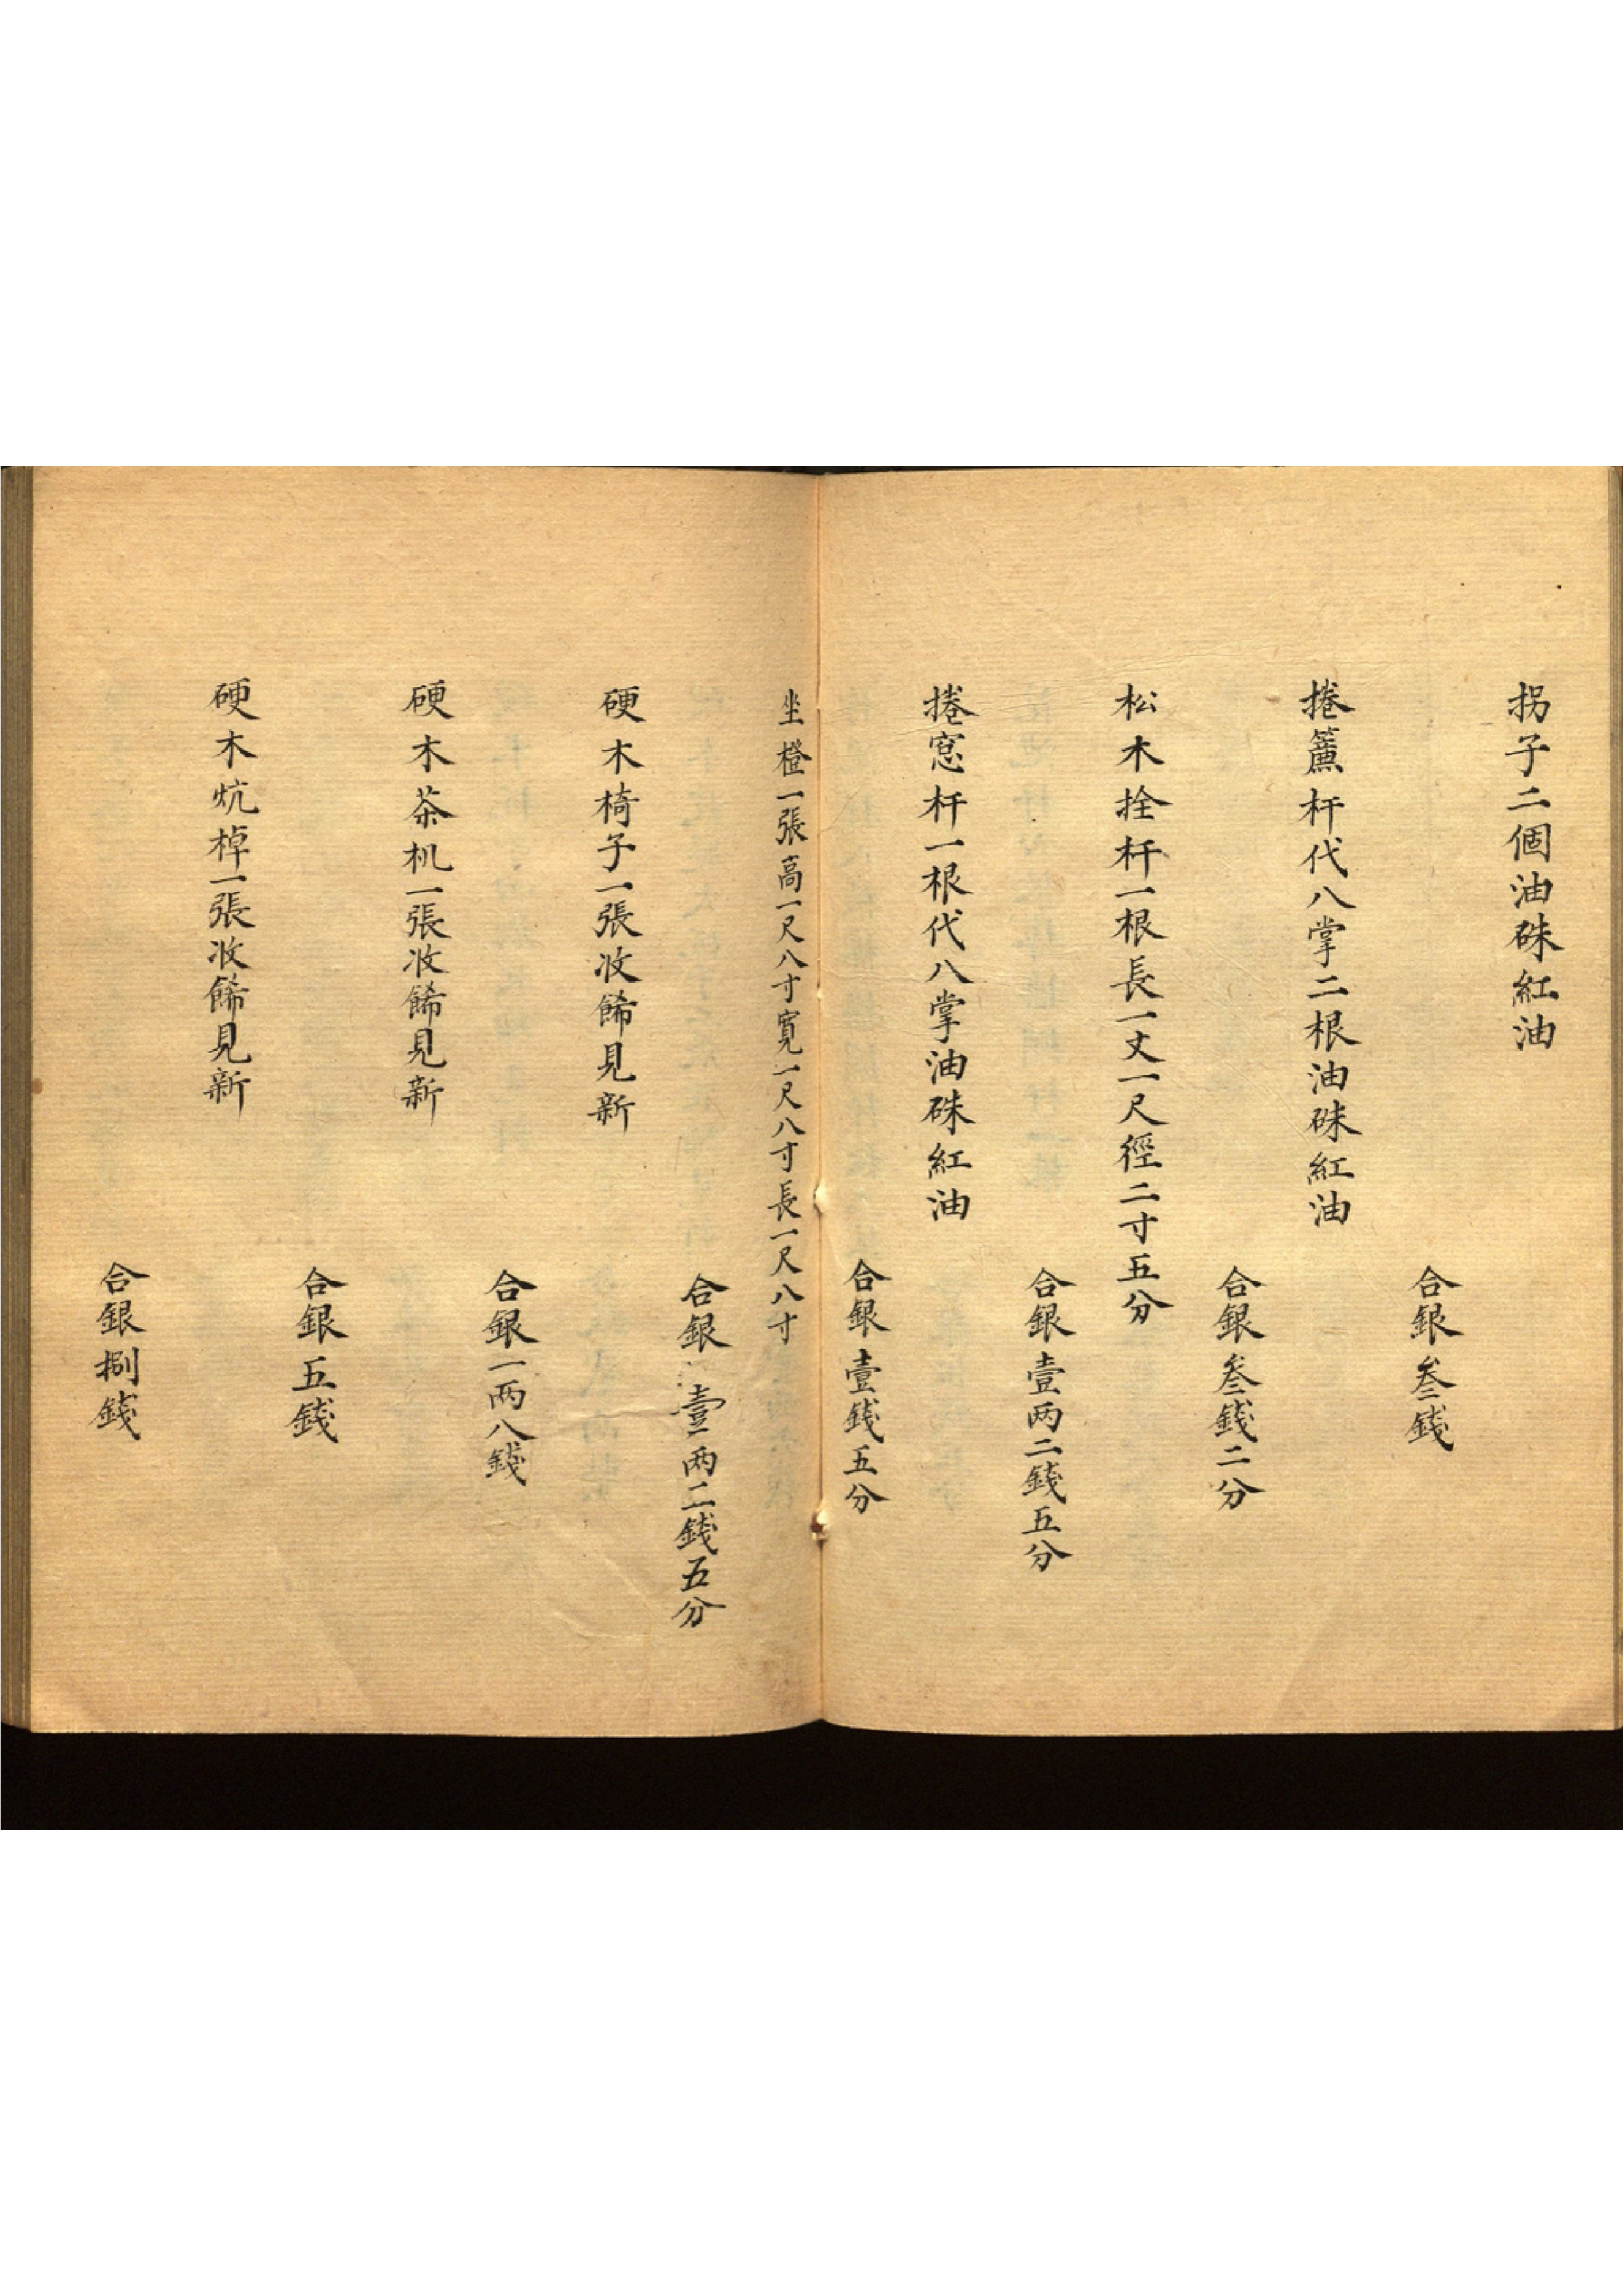 拐子二個油硃紅油
合銀叁錢
捲簾杆代八掌二根油硃紅油
合銀叁錢二分
松木拴杆一根長一丈一尺徑二寸五分
合銀壹两二錢五分
捲窓杆一根代八掌油硃紅油
合銀壹錢五分
坐櫈一張高一尺八寸寬一尺八寸長一尺八寸
合銀壹两二錢五分
硬木椅子一張收餙見新
合銀一两八錢
硬木茶机一張收餙見新
合銀五錢
硬木炕棹一張收餙見新
合銀捌錢